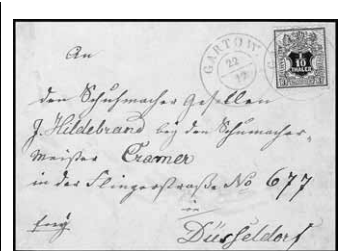 An
GARTOW
22
12
1
10
THALER
den Schuhmacher Gesellen
J. Hildebrand bey den Schumacher-
Meister Cramer
in der Flingerstraße No 677
in
frey
Düsseldorf